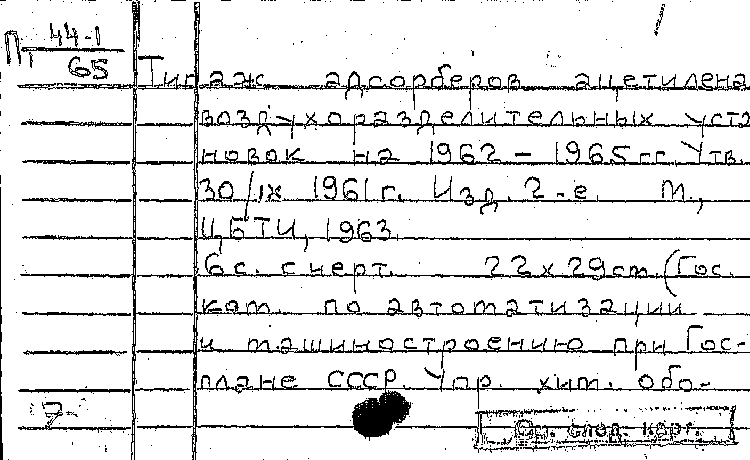 Пт 44-1
65
Типаж адсорберов ацетилена
воздухоразделительных уста
новок на 1962 - 1965 гг. Утв.
30/IX 1961 г. Изд. 2-е. М.,
ЦБТИ, 1963.
6 с. с черт. 22 x 29 см. (Гос.
ком. по автоматизации
и машиностроению при Гос-
плане СССР. Упр. хим. обо-
7-
См. след. карт.